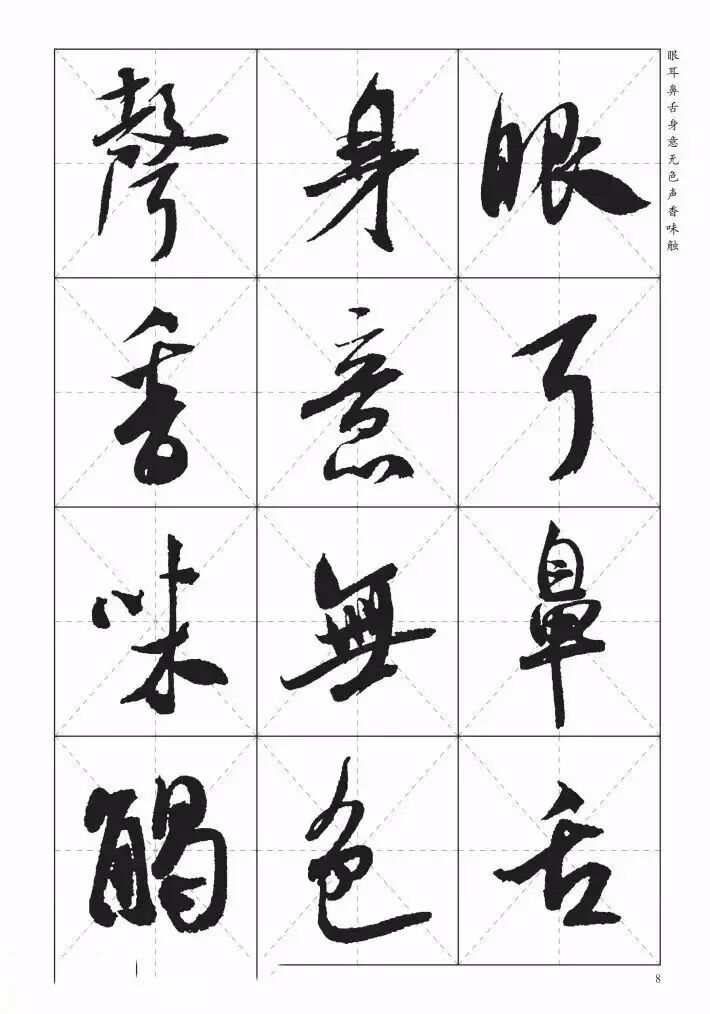 眼耳鼻舌
身意無色
聲香味觸
眼耳鼻舌身意无色声香味触
8